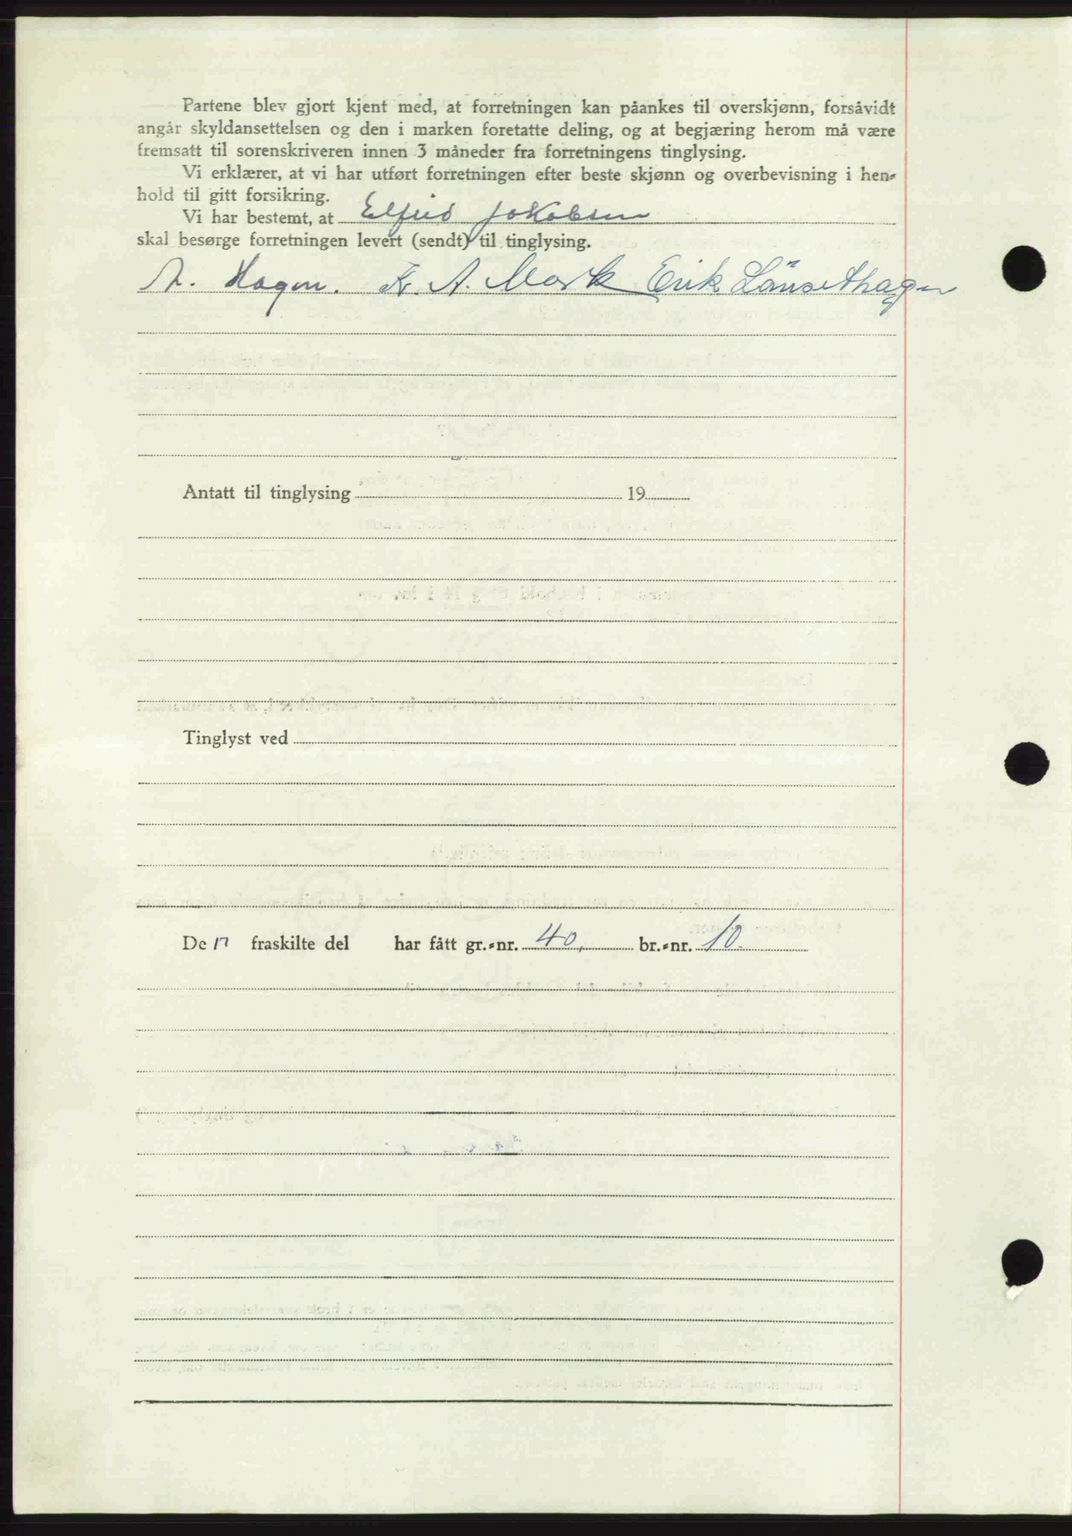 Partene blev gjort kjent med, at forretningen kan påankes til overskjønn, forsåvidt
angår skyldansettelsen og den i marken foretatte deling, og at begjæring herom må være
fremsatt til sorenskriveren innen 3 måneder fra forretningens tinglysing.
Vi erklærer, at vi har utført forretningen efter beste skjønn og overbevisning i hen-
hold til gitt forsikring.
Vi har bestemt, at Elfrid Jakobsen
skal besørge forretningen levert (sendt) til tinglysing.
N. Hagen. Fr. A. Mark Erik Lånsethagen
Antatt til tinglysing 19
Tinglyst ved
De n fraskilte del har fått gr.-nr. 40, br.-nr. 10